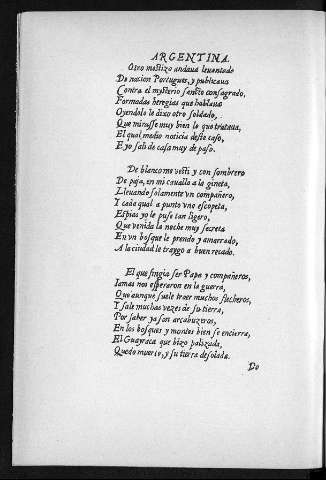 ARGENTINA.
Otro mestizo andaua leuantado
De nacion Portugues, y publicaua
Contra el mysterio sancto consagrado,
Formadas heregias que hablaua
Oyendolo le dixo otro soldado,
Que mirasse muy bien lo que trataua,
El qual me dio noticia deste caso,
E yo sali de casa muy de paso.
De blanco me vesti y con sombrero
De paja, en mi cauallo a la gineta,
Lleuando solamente vn compañero,
Y cada qual a punto vno escopeta,
Espias yo le puse tan ligero,
Que venida la noche muy secreta
En vn bosque le prendo y amarrado,
A la ciudad le traygo a buen recado.
El que fingia ser Papa y compañeros,
Iamas nos esperaron en la guerra,
Que aunque suele traer muchos flecheros,
Y sale muchas vezes de su tierra,
Por saber ya son arcabuzeros,
En los bosques y montes bien se encierra,
El Guayraca que hizo palizada,
Quedo muerto, y su tierra desolada.
Do